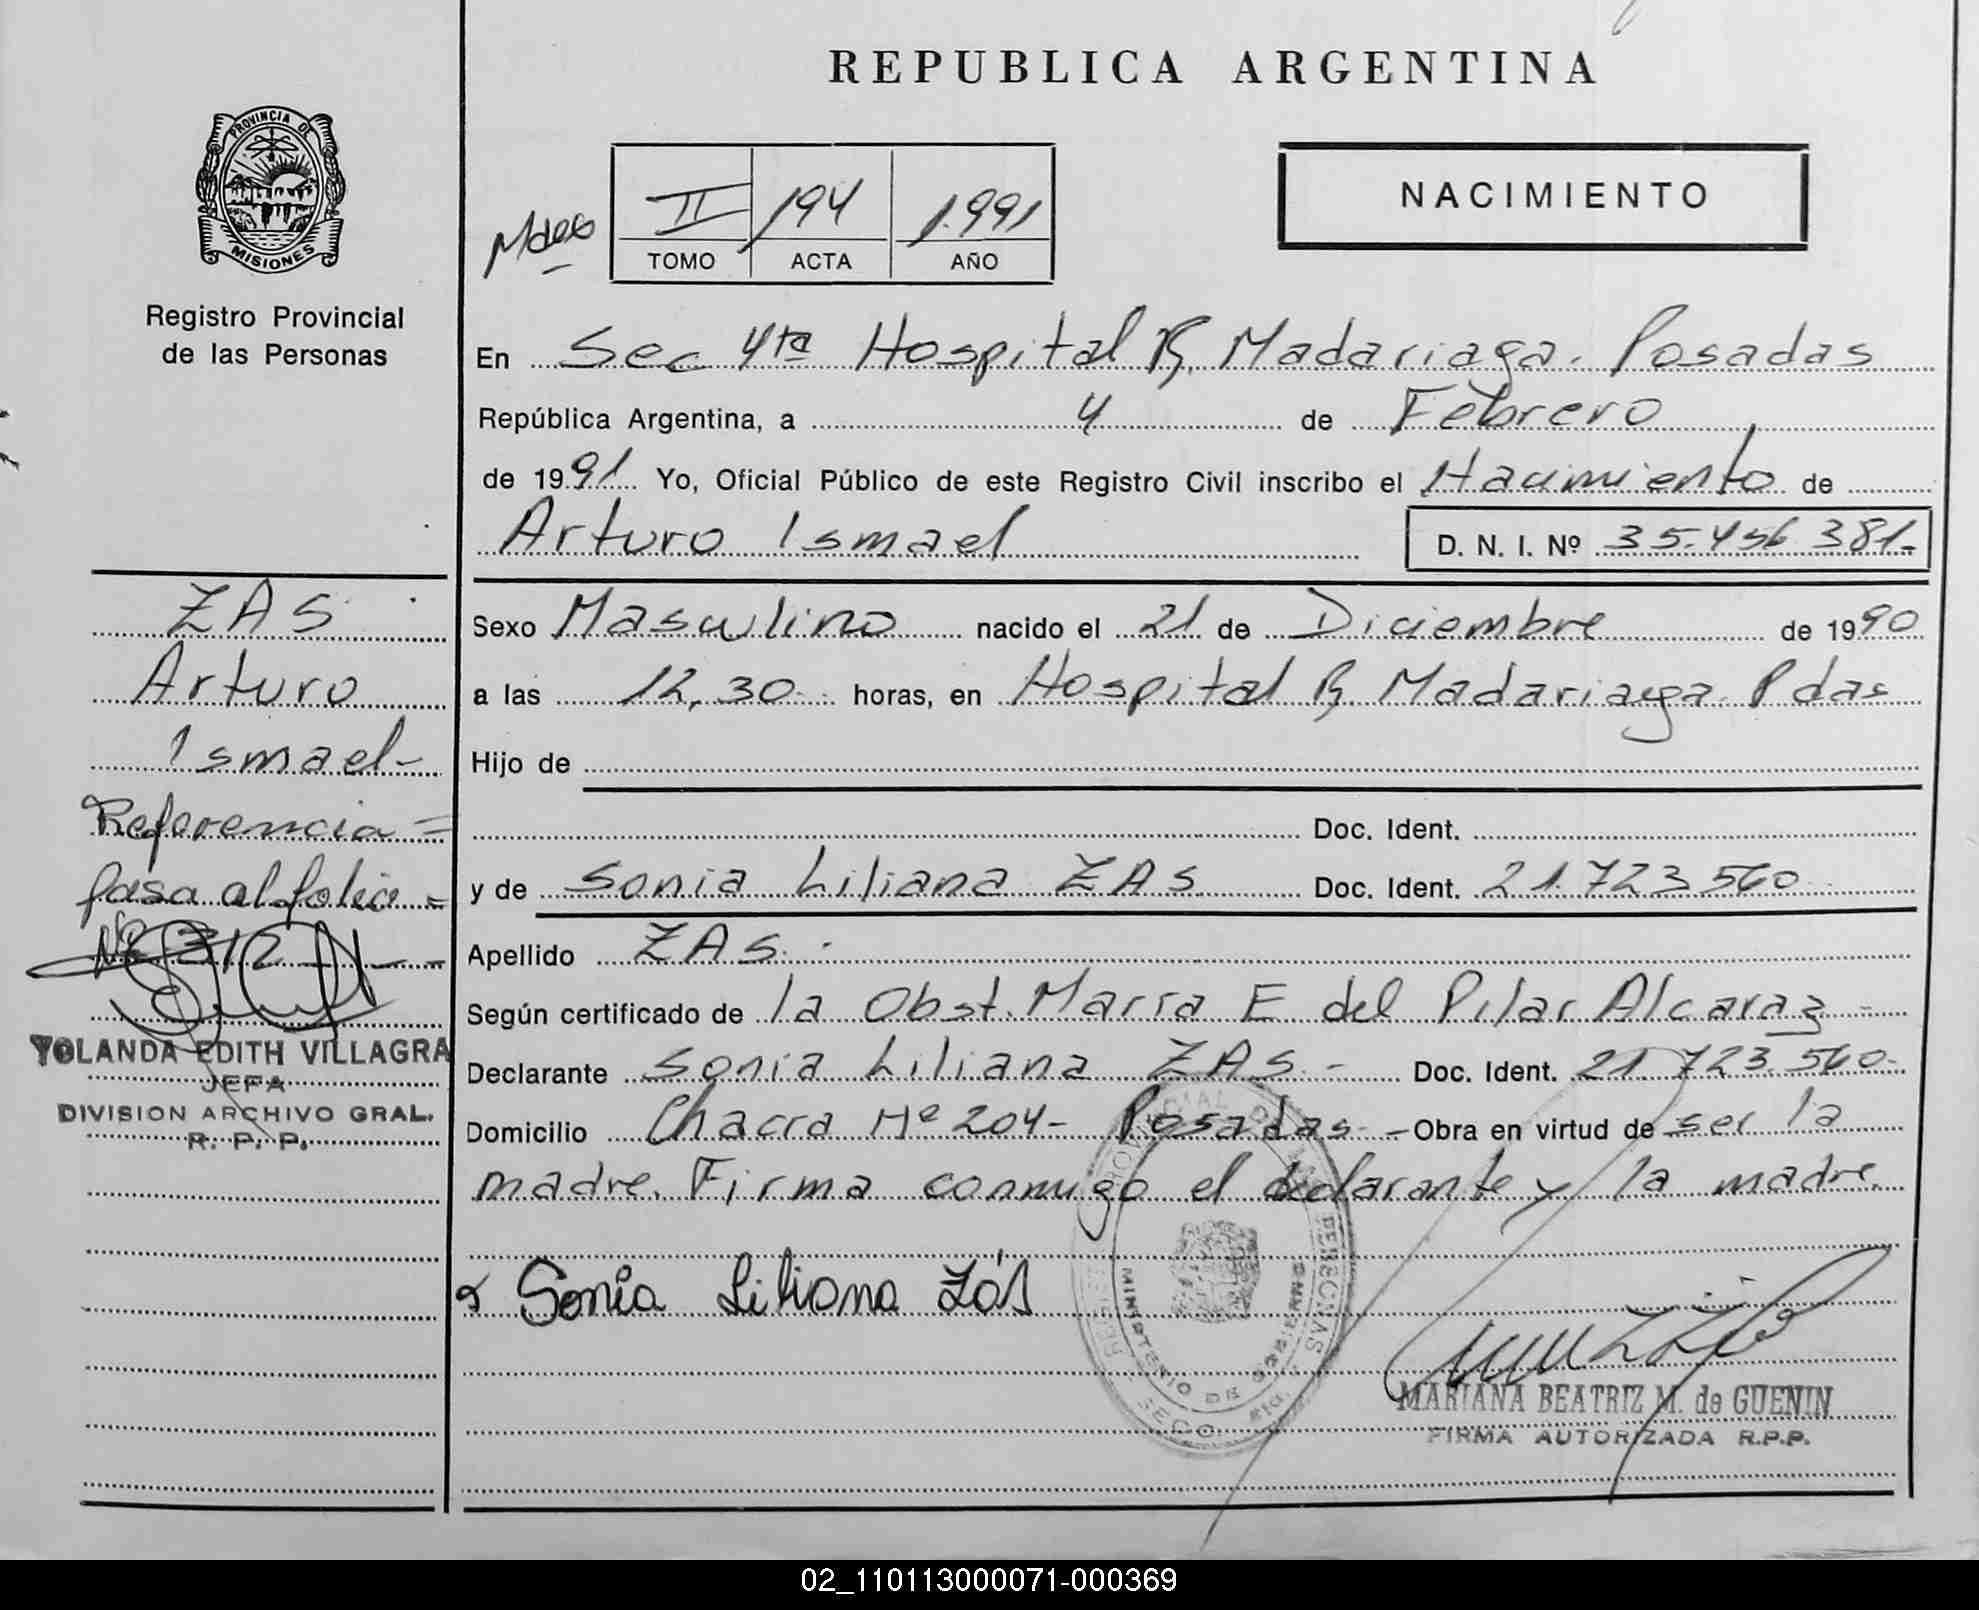 REPUBLICA ARGENTINA
PROVINCIA DE
MISIONES
Registro Provincial
de las Personas
II 194 1.991
TOMO ACTA AÑO
NACIMIENTO
En Sec 4ta Hospital R. Madariaga. Posadas
República Argentina, a 4 de Febrero
de 1991 Yo, Oficial Público de este Registro Civil inscribo el Nacimiento de
Arturo Ismael D. N. I. Nº 35.456 381-
ZAS
Arturo
Ismael-
Referencia =
pasa al folio =
Nº 312 - -
YOLANDA EDITH VILLAGRA
JEFA
DIVISION ARCHIVO GRAL.
R. P. P.
Sexo Masculino nacido el 21 de Diciembre de 1990
a las 12,30 horas, en Hospital R. Madariaga. Pdas
Hijo de
Doc. Ident.
y de Sonia Liliana ZAS Doc. Ident. 21.723 560
Apellido ZAS.
Según certificado de la Obst. María E del Pilar Alcaraz -
Declarante Sonia Liliana ZAS - Doc. Ident. 21.723.560-
Domicilio Chacra Nº 204- Posadas - Obra en virtud de ser la
madre. Firma conmigo el declarante y la madre.
Sonia Liliana Zás
MINISTERIO DE GOBIERNO
MARIANA BEATRIZ M. de GUENIN
FIRMA AUTORIZADA R.P.P.
02_110113000071-000369